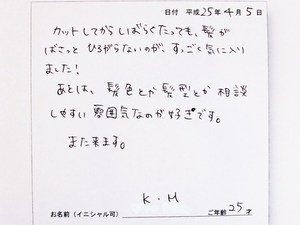 日付 平成25年4月5日
カットしてからしばらくたっても、髪が
ばさっとひろがらないのが、すっごく気に入り
ました!
あとは、髪色とか髪型とか相談
しやすい雰囲気なのが好きです。
また来ます。
K・M
お名前(イニシャル可) ご年齢 25才